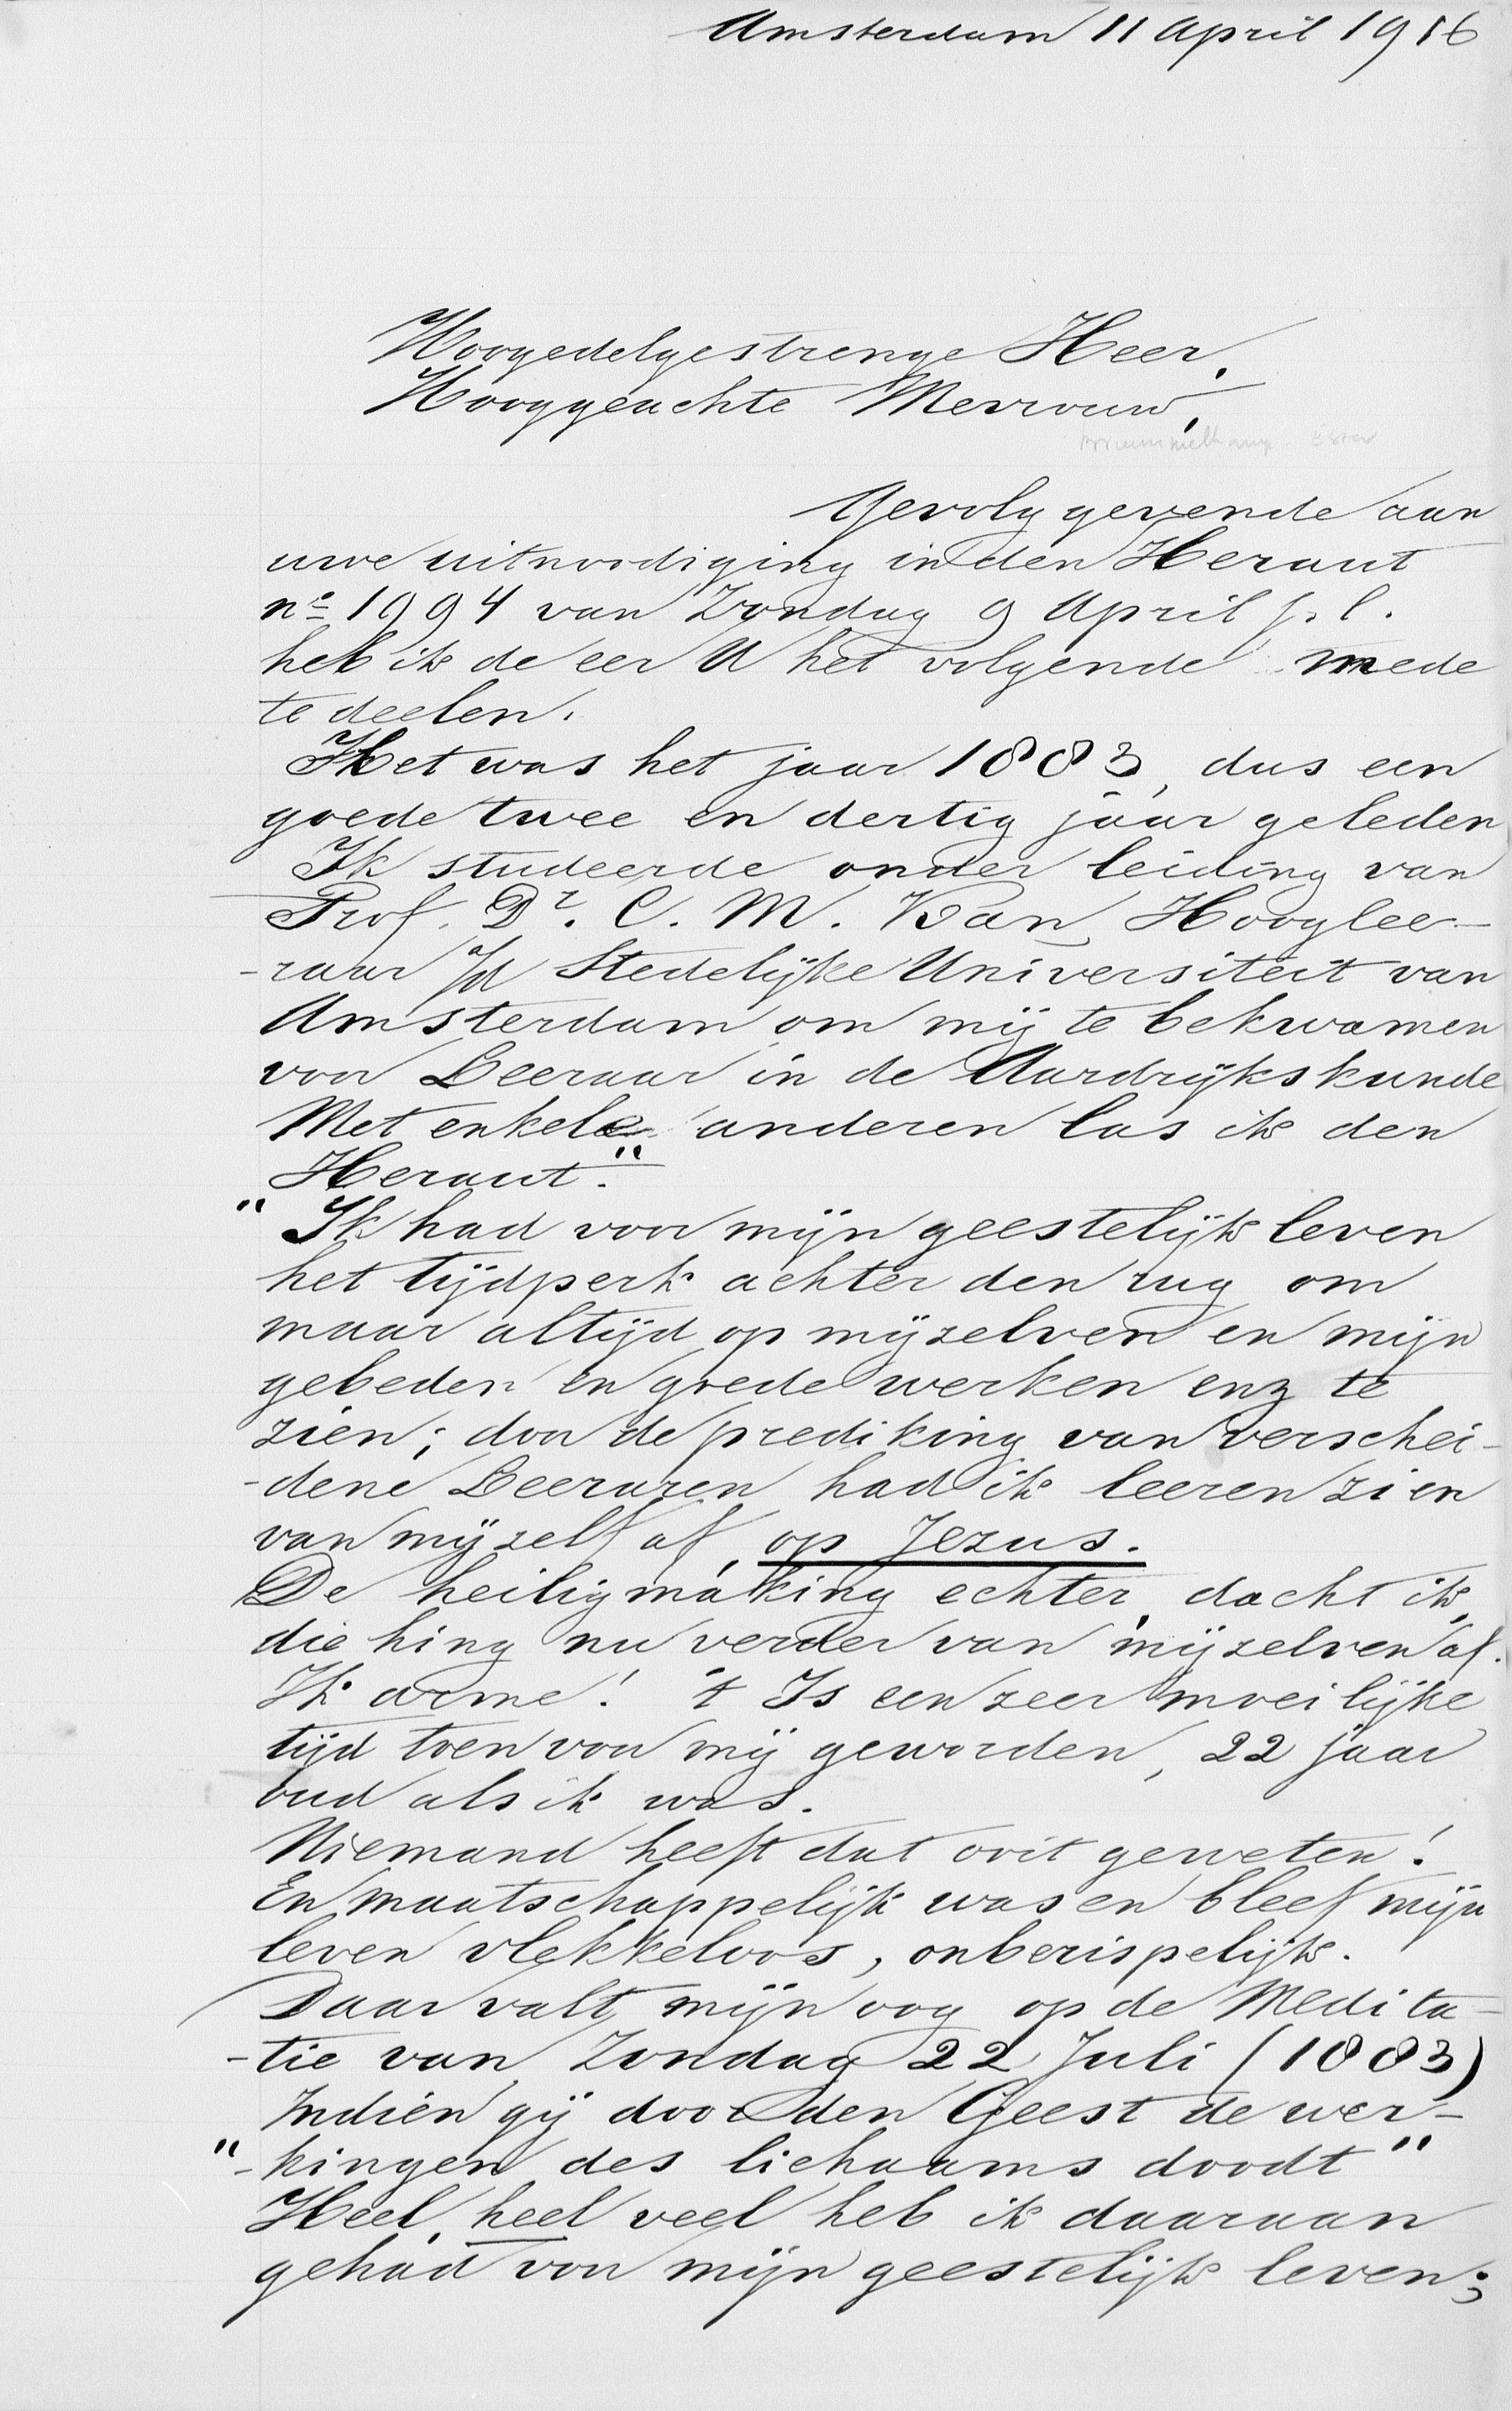 Amsterdam 11 April 1916
Hoogedelgestrenge Heer,
Hooggeachte Mevrouw,
Gevolg gevende aan
uwe uitnoodiging in den Heraut
no 1994 van Zondag 9 April j.l.
heb ik de eer U het volgende mede
te deelen.
Het was het jaar 1883, dus een
goede twee en dertig jaar geleden
Ik studeerde onder leiding van
Prof. Dr. C. M. Kan, Hooglee-
-raar a/d Stedelijke Universiteit van
Amsterdam om mij te bekwamen
voor Leeraar in de Aardrijkskunde
Met enkele anderen las ik den
Heraut."
" Ik had voor mijn geestelijk leven
het tijdperk achter den rug om
maar altijd op mijzelven en mijn
gebeden en goede werken enz te
zien; door de prediking van verschei-
-dene Leeraren had ik leeren zien
van mijzelf af, op Jezus.
De heiligmaking echter, dacht ik,
die hing nu verder van mijzelven af.
Ik arme! 't Is een zeer moeilijke
tijd toen voor mij geworden, 22 jaar
oud als ik was.
Niemand heeft dat ooit geweten!
En maatschappelijk was en bleef mijn
leven vlekkeloos, onberispelijk.
Daar valt mijn oog op de Medita-
-tie van Zondag 22 Juli (1883)
Indien gij door den Geest de wer-
"-kingen des lichaams doodt"
Heel, heel veel heb ik daaraan
gehad voor mijn geestelijk leven;